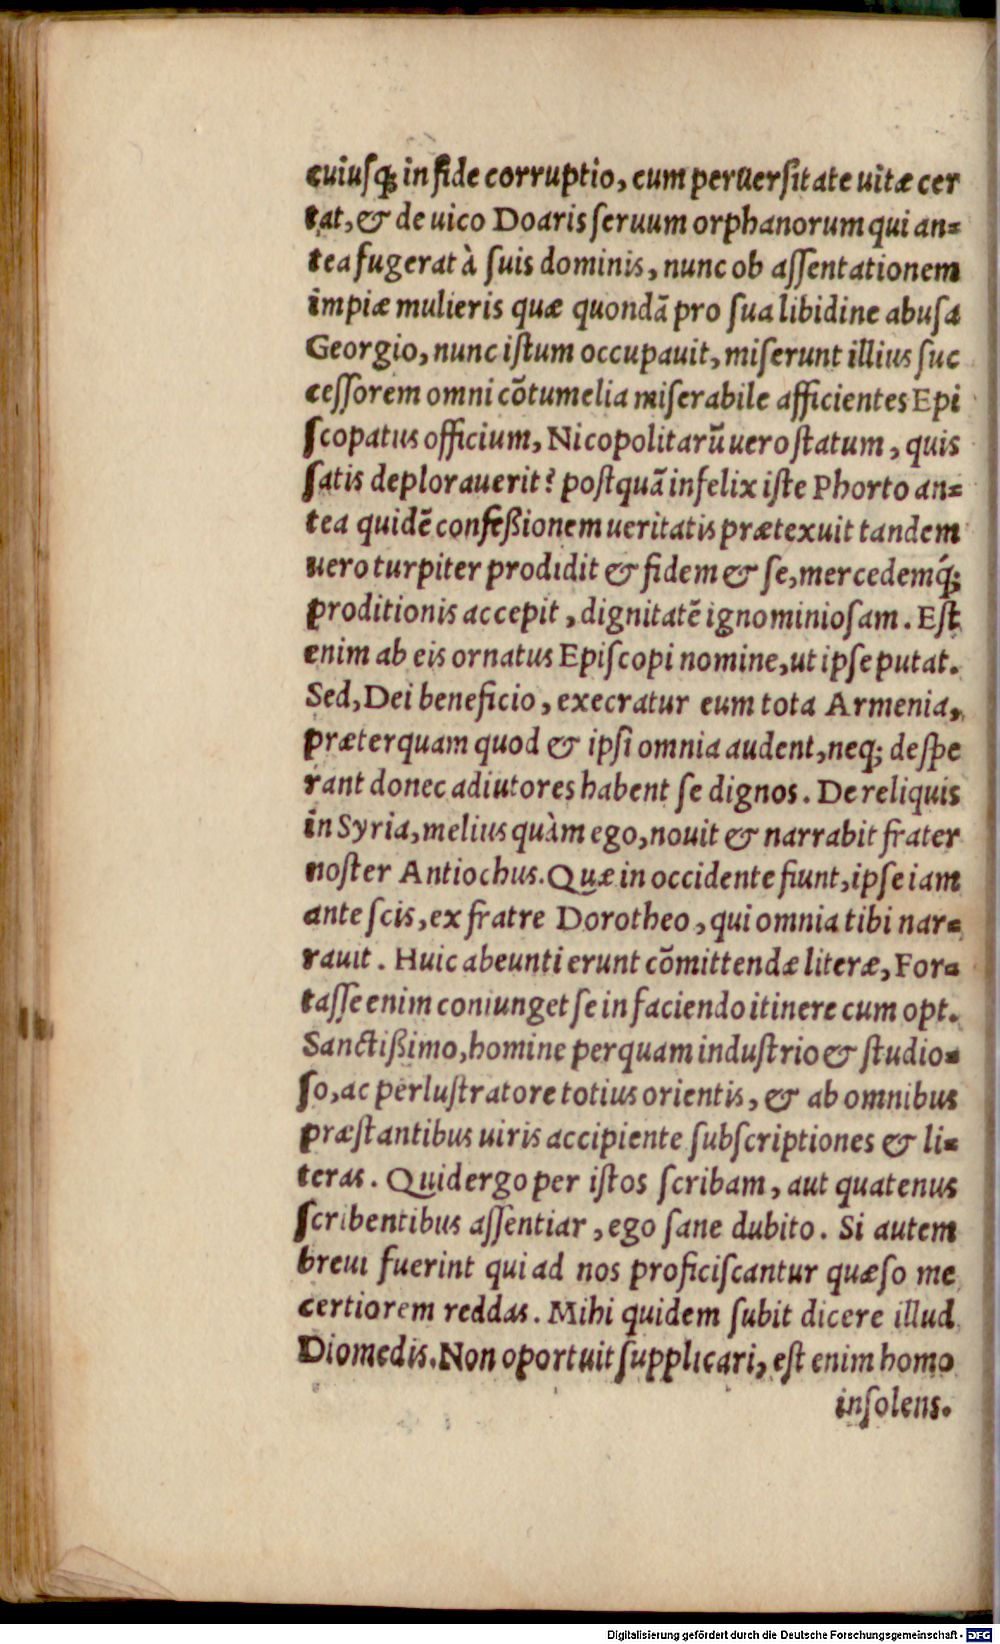 cuiusq; in fide corruptio, cum peruersitate uitæ cer
tat, & de uico Doaris seruum orphanorum qui an=
tea fugerat à suis dominis, nunc ob assentationem
impiæ mulieris quæ quondā pro sua libidine abusa
Georgio, nunc istum occupauit, miserunt illius suc
cessorem omni cōtumelia miserabile afficientes Epi
scopatus officium, Nicopolitarū uero statum, quis
satis deplorauerit? postquā infelix iste Phorto an=
tea quidē confeßionem ueritatis prætexuit tandem
uero turpiter prodidit & fidem & se, mercedemq́;
proditionis accepit, dignitatē ignominiosam. Est
enim ab eis ornatus Episcopi nomine, ut ipse putat.
Sed, Dei beneficio, execratur eum tota Armenia,
præterquam quod & ipsi omnia audent, neq; despe
rant donec adiutores habent se dignos. De reliquis
in Syria, melius quàm ego, nouit & narrabit frater
noster Antiochus. Quæ in occidente fiunt, ipse iam
ante scis, ex fratre Dorotheo, qui omnia tibi nar=
rauit. Huic abeunti erunt cōmittendæ literæ, For=
tasse enim coniunget se in faciendo itinere cum opt.
Sanctißimo, homine perquam industrio & studio=
so, ac perlustratore totius orientis, & ab omnibus
præstantibus uiris accipiente subscriptiones & li=
teras. Quid ergo per istos scribam, aut quatenus
scribentibus assentiar, ego sane dubito. Si autem
breui fuerint qui ad nos proficiscantur quæso me
certiorem reddas. Mihi quidem subit dicere illud
Diomedis. Non oportuit supplicari, est enim homo
insolens.
Digitalisierung gefördert durch die Deutsche Forschungsgemeinschaft - DFG